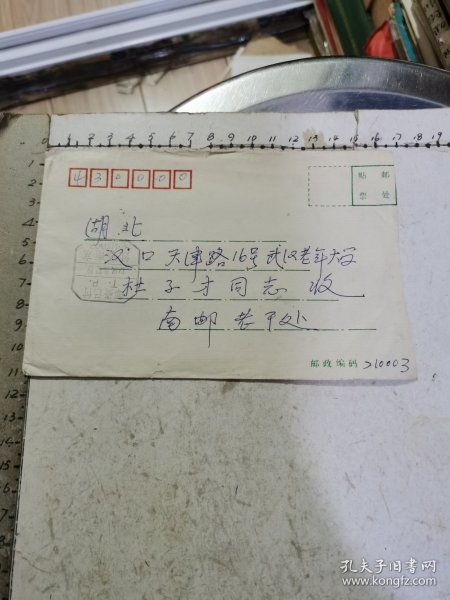 0 1 2 3 4 5 6 7 8 9 10 11 12 13 14 15 16 17 18 19
430000
贴 邮
票 处
湖北
汉口天津路16号武汉老年大学
杜子才同志收
南邮老干处
邮政编码 210003
孔夫子旧书网
www.kongfz.com